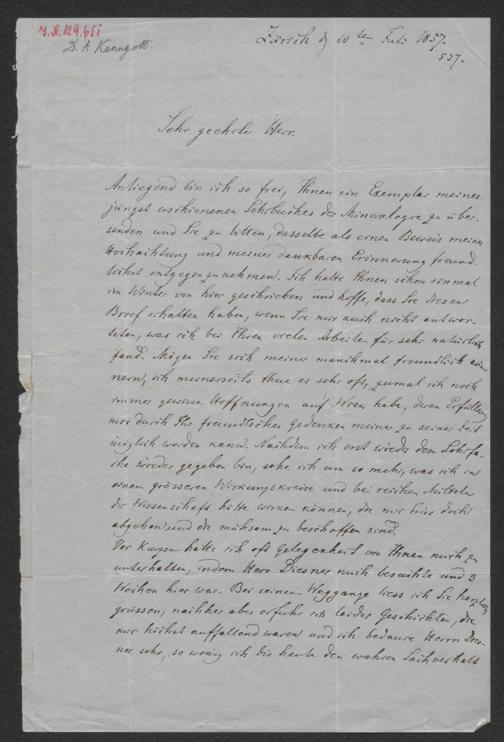 J.N. 129.651
D. A. Kenngott.
Zürich d 10ten Juli 1857.
537.
Sehr geehrter Herr.
Anliegend bin ich so frei, Ihnen ein Exemplar meines
jüngst erschienenen Lehrbuches der Mineralogie zu über-
senden und Sie zu bitten, dasselbe als einen Beweis meiner
Hochachtung und meiner dankbaren Erinnerung freund-
lichst entgegen zu nehmen. Ich hatte Ihnen schon einmal
im Winter von hier geschrieben und hoffe, dass Sie diesen
Brief erhalten haben, wenn Sie mir auch nicht antwor-
teten, was ich bei Ihren vielen Arbeiten für sehr natürlich
fand. Mögen Sie sich meiner manchmal freundlich erin-
nern, ich meinerseits thue es sehr oft, zumal ich noch
immer gewisse Hoffnungen auf Wien habe, deren Erfüllung
nur durch Ihr freundliches Gedenken meiner zu seiner Zeit
möglich werden kann. Nachdem ich erst wieder dem Lehrfa-
che wieder gegeben bin, sehe ich um so mehr, was ich in
einem grösseren Wirkungskreise und bei reichen Mitteln
der Wissenschaft hätte wirken können, die mir hier doch
abgehen und die mühsam zu beschaffen sind.
Vor Kurzem hatte ich oft Gelegenheit von Ihnen mich zu
unterhalten, indem Herr Diesner mich besuchte und 3
Wochen hier war. Bei seinem Weggange liess ich Sie herzlich
grüssen, nachher aber erfuhr ich leider Geschichten, die
mir höchst auffallend waren und ich bedaure Herrn Dies-
ner sehr, so wenig ich bis heute den wahren Sachverhalt